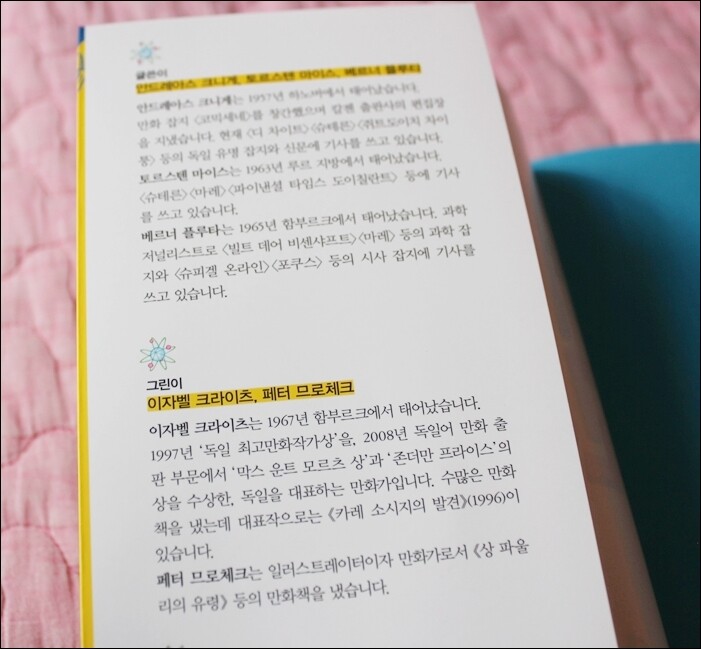 글쓴이
안드레아스 크니게, 토르스텐 마이스, 베르너 플루타
안드레아스 크니게는 1957년 하노버에서 태어났습니다.
만화 잡지 〈코믹세네〉를 창간했으며 칼젠 출판사의 편집장
을 지냈습니다. 현재 〈디 차이트〉〈슈테른〉〈쥐트도이치 차이
퉁〉 등의 독일 유명 잡지와 신문에 기사를 쓰고 있습니다.
토르스텐 마이스는 1963년 루르 지방에서 태어났습니다.
〈슈테른〉〈마레〉〈파이낸셜 타임스 도이칠란트〉 등에 기사
를 쓰고 있습니다.
베르너 플루타는 1965년 함부르크에서 태어났습니다. 과학
저널리스트로 〈빌트 데어 비센샤프트〉〈마레〉 등의 과학 잡
지와 〈슈피겔 온라인〉〈포쿠스〉 등의 시사 잡지에 기사를
쓰고 있습니다.
그린이
이자벨 크라이츠, 페터 므로체크
이자벨 크라이츠는 1967년 함부르크에서 태어났습니다.
1997년 ‘독일 최고만화작가상’을, 2008년 독일어 만화 출
판 부문에서 ‘막스 운트 모르츠 상’과 ‘존더만 프라이스’의
상을 수상한, 독일을 대표하는 만화가입니다. 수많은 만화
책을 냈는데 대표작으로는 《카레 소시지의 발견》(1996)이
있습니다.
페터 므로체크는 일러스트레이터이자 만화가로서 《상 파울
리의 유령》 등의 만화책을 냈습니다.